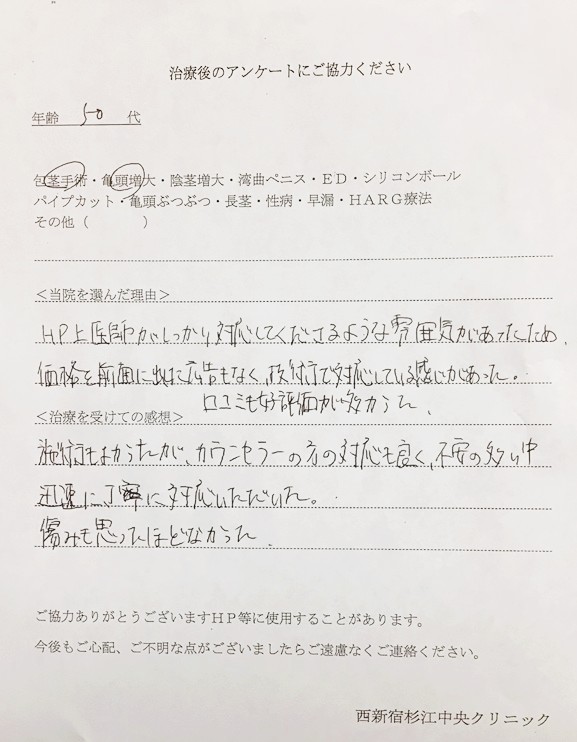 治療後のアンケートにご協力ください
年齢 50 代
包茎手術・亀頭増大・陰茎増大・湾曲ペニス・ED・シリコンボール
パイプカット・亀頭ぶつぶつ・長茎・性病・早漏・HARG療法
その他（　　　）
＜当院を選んだ理由＞
HP上医師がしっかり対応してくださるような雰囲気があったため、
価格を前面に出した広告もなく、技術で対応している感じがあった。
口コミも好評価が多かった、
＜治療を受けての感想＞
施術もよかったが、カウンセラーの方の対応も良く、不安の多い中
迅速に丁寧に対応いただいた。
傷みも思ったほどなかった、
ご協力ありがとうございますHP等に使用することがあります。
今後もご心配、ご不明な点がございましたらご遠慮なくご連絡ください。
西新宿杉江中央クリニック